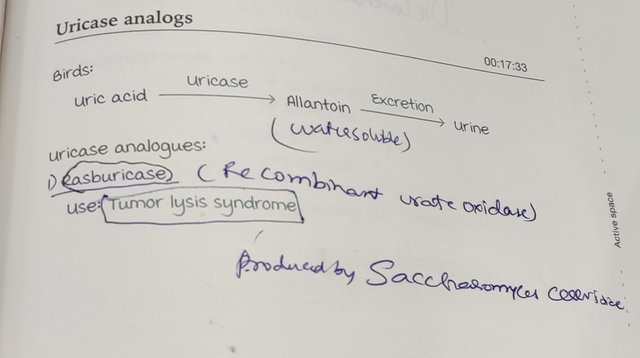 Uricase analogs
00:17:33
Birds:
uric acid → uricase → Allantoin → Excretion → urine
(watersoluble)
uricase analogues:
1) Rasburicase (Recombinant urate oxidase)
use: Tumor lysis syndrome
Produced by Saccharomyces
Active space